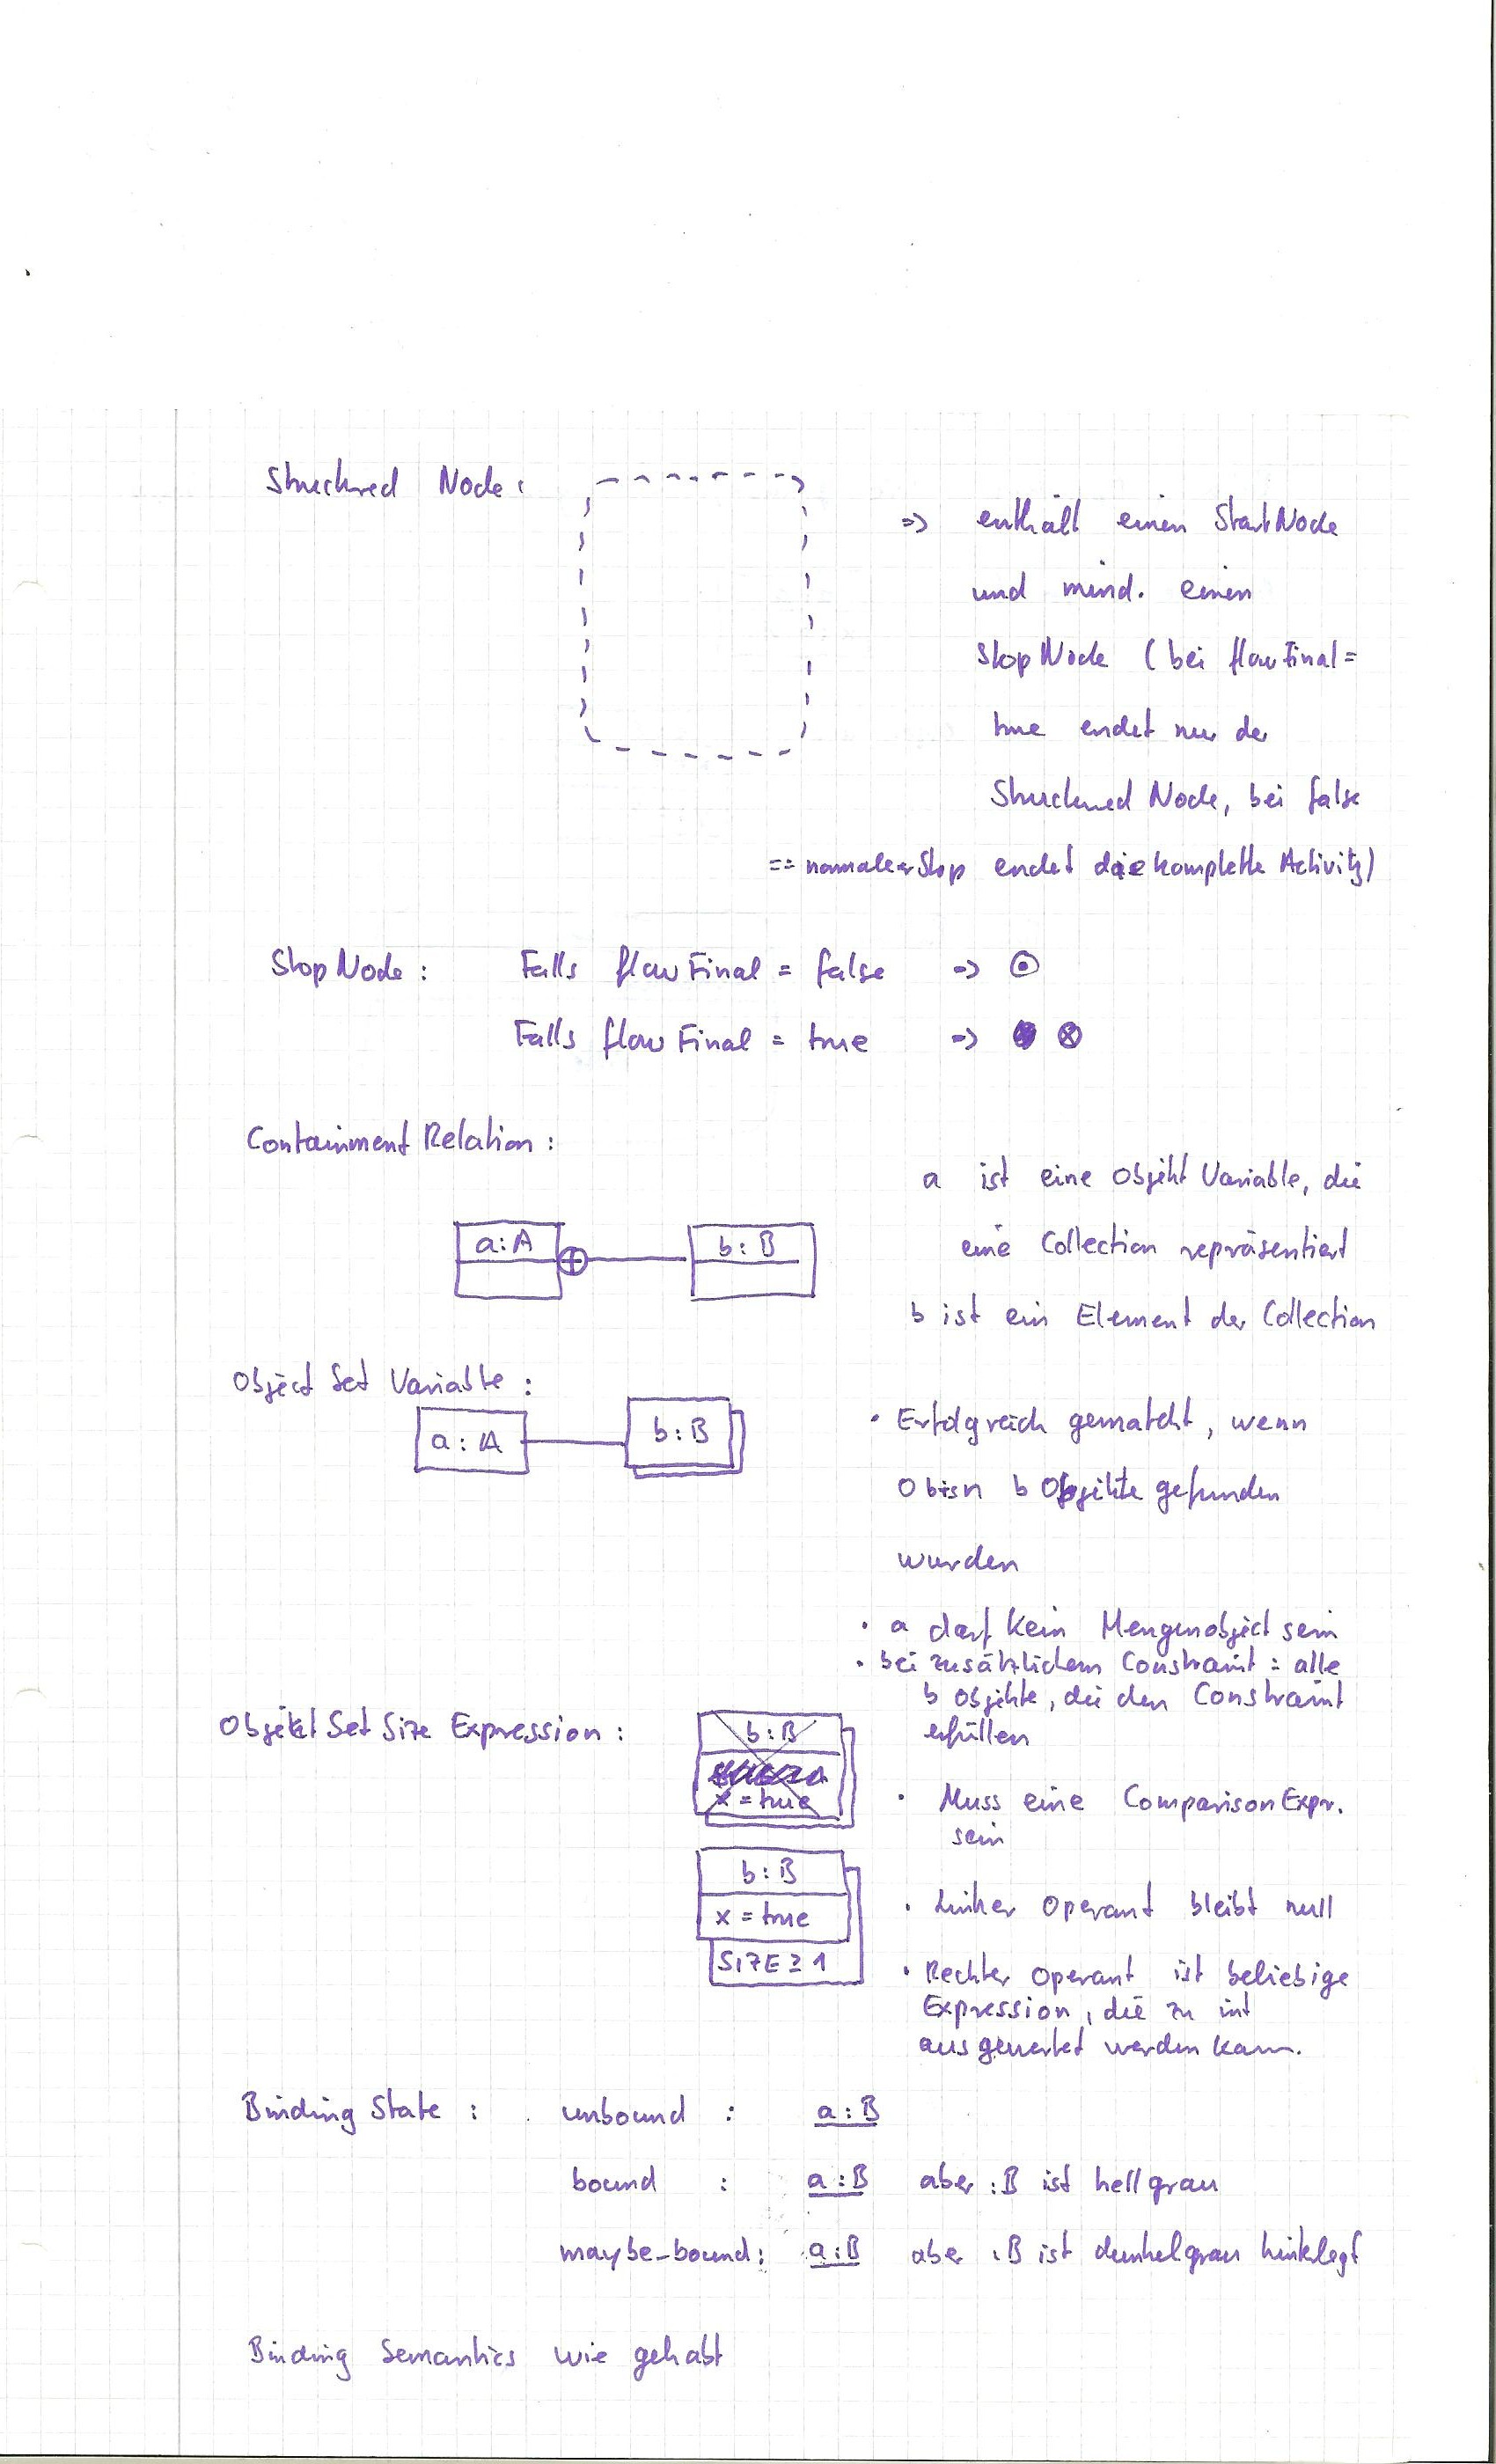 Structured Node:
=> enthält einen StartNode
und mind. einen
StopNode (bei flowFinal =
true endet nur der
Structured Node, bei false
== normaler Stop endet die komplette Activity)
StopNode: Falls flowFinal = false =>
Falls flowFinal = true =>
Containment Relation:
a ist eine Objekt Variable, die
a:A
b:B
eine Collection repräsentiert
b ist ein Element der Collection
Object Set Variable:
a:A
b:B
• Erfolgreich gematcht, wenn
0 bis n b Objekte gefunden
wurden
• a darf kein Mengenobject sein
• bei zusätzlichem Constraint: alle
b Objekte, die den Constraint
erfüllen
Objekt Set Size Expression:
b:B
x = true
• Muss eine ComparisonExpr.
sein
b:B
x = true
SIZE ≥ 1
• Linker Operant bleibt null
• Rechter Operant ist beliebige
Expression, die zu int
ausgewertet werden kann.
Binding State: unbound : a:B
bound : a:B aber :B ist hellgrau
maybe_bound: a:B aber :B ist dunkelgrau hinterlegt
Binding Semantics wie gehabt